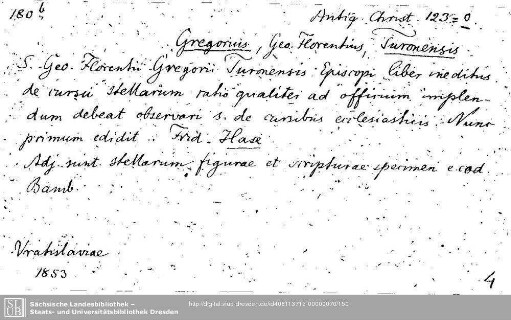 180 b
Antiq. Christ. 123 = 0
Gregorius, Geo. Florentius, Turonensis
S. Geo. Florentii Gregorii Turonensis Episcopi liber ineditus
de cursu stellarum ratio qualiter ad officium implen-
dum debeat observari s. de cursibus ecclesiasticis. Nunc
primum edidit Frid. Hase
Adj. sunt stellarum figurae et scripturae specimen e cod
Bamb
Vratislaviae
1853
4
Sächsische Landesbibliothek –
Staats- und Universitätsbibliothek Dresden